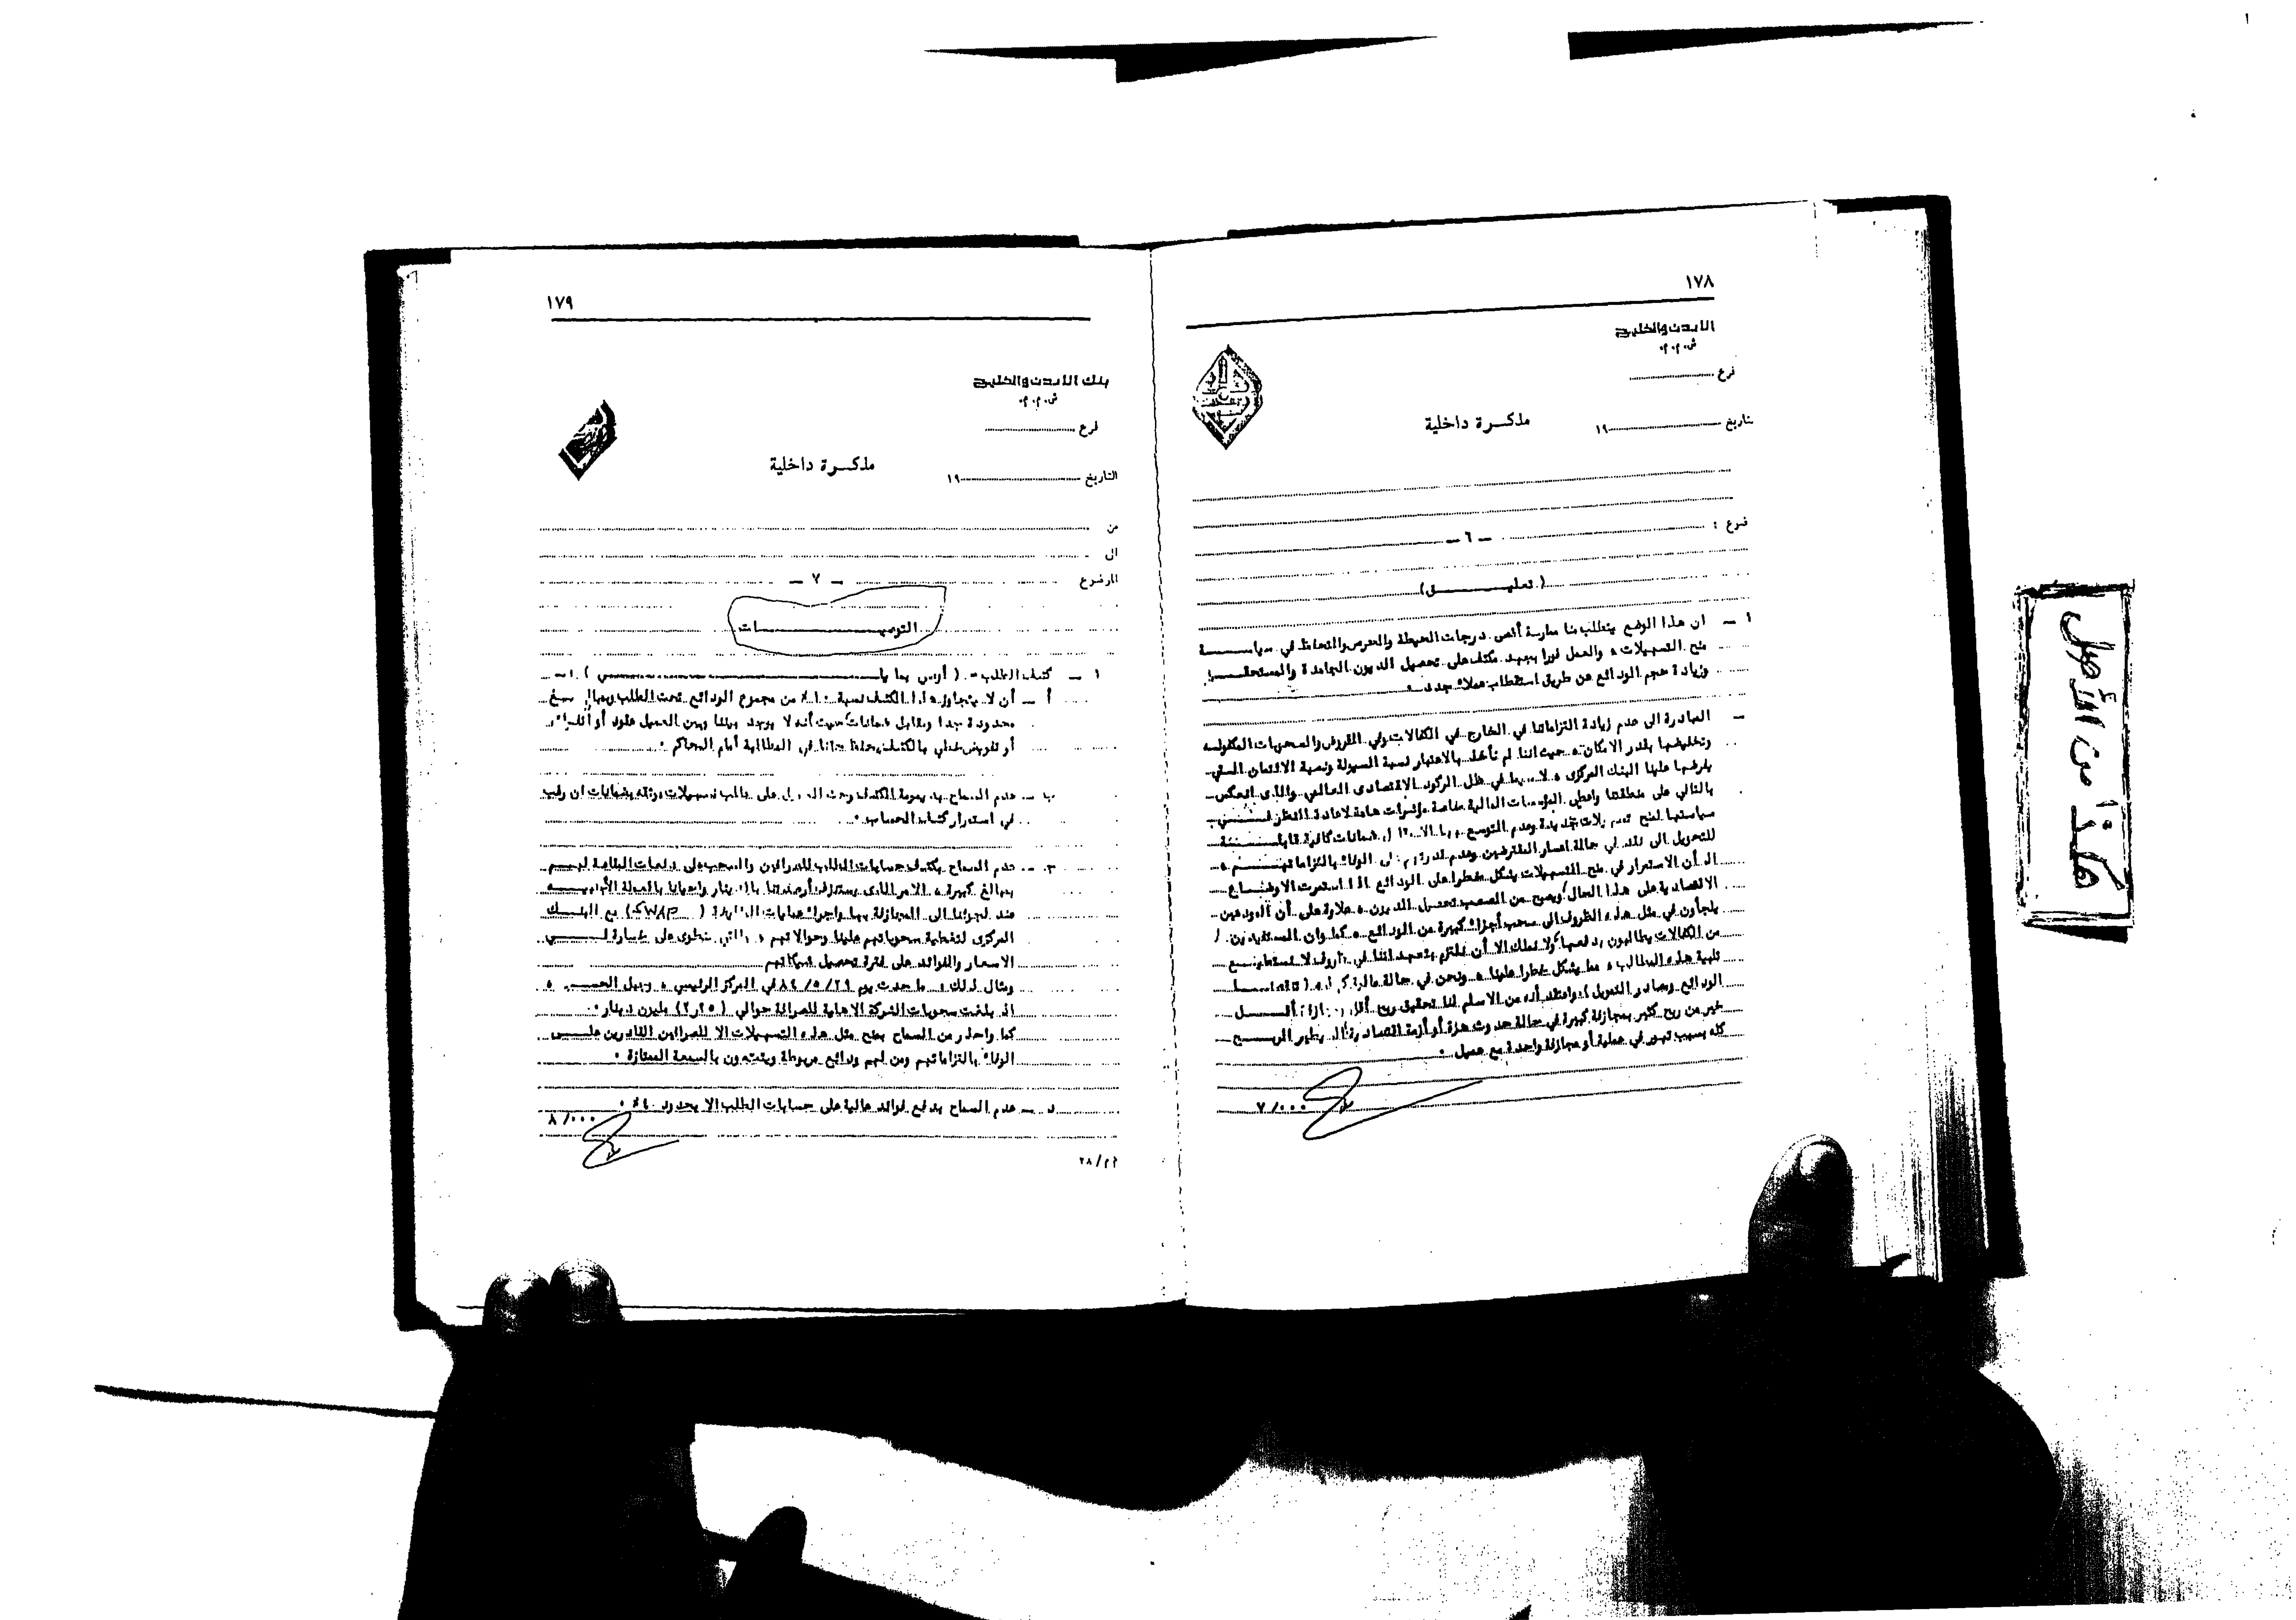 ١٧٨
الأردن والخليج
ش.م.م.
فرع
تاريخ ١٩
مذكرة داخلية
ضوع :
— ٦ —
( تعليق )
أ — ان هذا الوضع يتطلب منا ممارسة أقصى درجات الحيطة والحرص والتحفظ في سياسة
منح التسهيلات ، والعمل فورا بجهد مكثف على تحصيل الديون الجامدة والمستحقة
وزيادة حجم الودائع عن طريق استقطاب عملاء جدد .
— المبادرة الى عدم زيادة التزاماتنا في الخارج في الكفالات وفي القروض والسحوبات المكفولة
وتخفيضها بقدر الامكان ، حيث اننا لم نأخذ بالاعتبار نسبة السيولة ونسبة الائتمان التي
يفرضها علينا البنك المركزى ، لا سيما في ظل الركود الاقتصادى العالمي والذى انعكس
بالتالي على منطقتنا وأعطى المؤسسات المالية خاصة مؤشرات هامة لاعادة النظر في
سياستها لمنح تسهيلات جديدة وعدم التوسع بها الا مقابل ضمانات كافية قابلة
للتحويل الى نقد في حالة اعسار المقترضين وعدم قدرتهم على الوفاء بالتزاماتهم ،
اذ أن الاستمرار في منح التسهيلات يشكل خطرا على الودائع اذا استمرت الاوضاع
الاقتصادية على هذا الحال ويصبح من الصعب تحصيل الديون ، علاوة على أن المودعين
يلجأون في مثل هذه الظروف الى سحب أجزاء كبيرة من الودائع ، كما وان المستفيدين
من الكفالات يطالبون بدفعها ولا نملك الا أن نلتزم بتعهداتنا في ظروف لا نستطيع
تلبية هذه المطالب ، مما يشكل خطرا علينا ، ونحن في حالة مالية
الودائع ومصادر التمويل ) وأعتقد أنه من الاسلم لنا تحقيق ربح أقل
خير من ربح كثير بمجازفة كبيرة في حالة حدوث هزة أو أزمة اقتصادية اذ يطير الربح
كله بسبب تهور في عملية أو مجازفة واحدة مع عميل .
٧/٠٠٠
١٧٩
بنك الأردن والخليج
ش.م.م.
فرع
التاريخ ١٩
مذكرة داخلية
من
الى
الموضوع
— ٧ —
التوصيات
١ — كشف الطلب : ( أوصي بما يلي )
أ — أن لا يتجاوز هذا الكشف نسبة ١٠٪ من مجموع الودائع تحت الطلب وبمبالغ
محدودة جدا ومقابل ضمانات حيث أنه لا يوجد بيننا وبين العميل عقود أو
أو تفويض خطي بالكشف يحفظ حقنا في المطالبة أمام المحاكم .
ب — عدم السماح بديمومة الكشف وحث العميل على طلب تسهيلات موثقة بضمانات ان رغب
في استمرار كشف الحساب .
ج — عدم السماح بكشف حسابات الطلب للصرافين والسحب على دفعات البطاقة لهم
بمبالغ كبيرة ، الامر الذى يستنزف أرصدتنا بالدينار وأحيانا بالعملة الأجنبية
عند لجوئنا الى المجازفة بها واجراء عمليات المقايضة ( SWAP ) مع البنك
المركزى لتغطية سحوباتهم علينا وحوالاتهم ، والتي تنطوى على خسارة في
الاسعار والفوائد على فترة تحصيل شيكاتهم
ومثال لذلك ، ما حدث يوم ٨٤/٥/٢٩ في المركز الرئيسي ، وجبل الحسين ،
اذ بلغت سحوبات الشركة الاهلية للصرافة حوالي ( ٢٫٢٥ ) مليون دينار .
كما وأحذر من السماح بمنح مثل هذه التسهيلات الا للصرافين القادرين على
الوفاء بالتزاماتهم ومن لهم ودائع مربوطة ويتمتعون بالسمعة الممتازة .
د — عدم السماح بدفع فوائد عالية على حسابات الطلب الا بحدود ٤٪ .
٨/٠٠٠
هكذا من الأصل